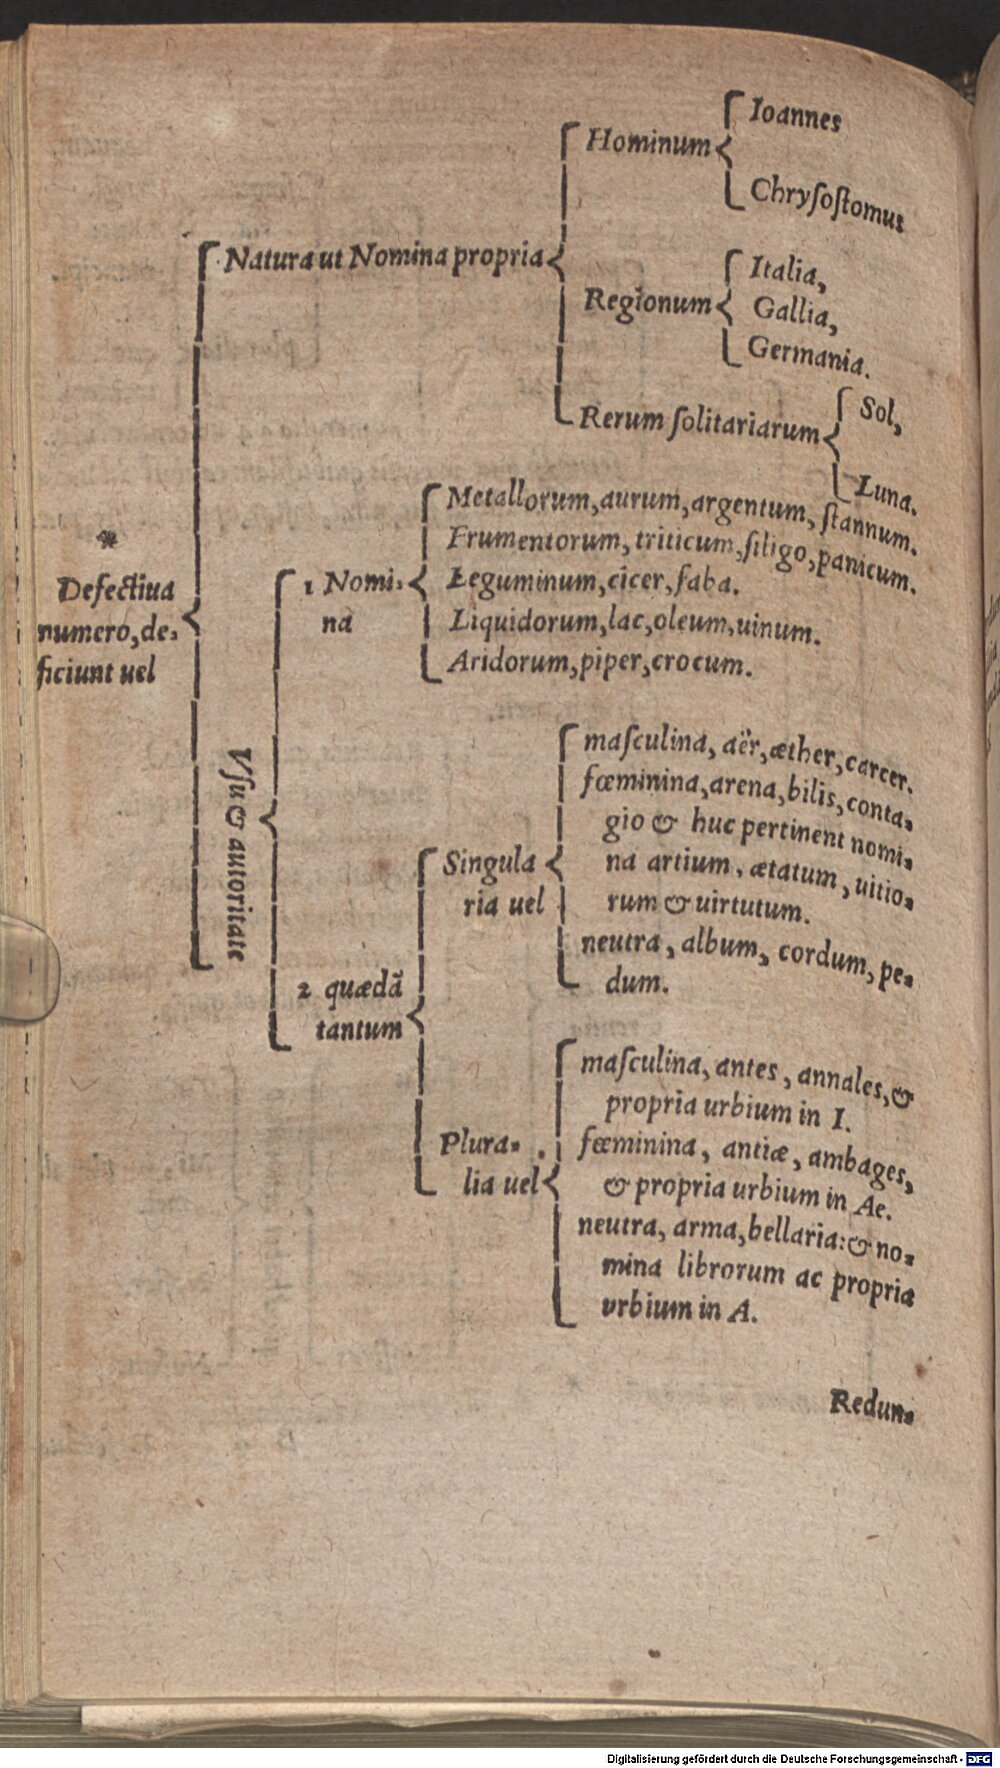 *
Defectiua
numero, de-
ficiunt uel
Natura ut Nomina propria
Hominum
Ioannes
Chryſoſtomus
Regionum
Italia,
Gallia,
Germania.
Rerum ſolitariarum
Sol,
Luna.
Vſu & autoritate
1 Nomi-
na
Metallorum, aurum, argentum, ſtannum.
Frumentorum, triticum, ſiligo, panicum.
Leguminum, cicer, faba.
Liquidorum, lac, oleum, uinum.
Aridorum, piper, crocum.
2 quædã
tantum
Singula
ria uel
maſculina, aër, æther, carcer.
fœminina, arena, bilis, conta-
gio & huc pertinent nomi-
na artium, ætatum, uitio-
rum & uirtutum.
neutra, album, cordum, pe-
dum.
Plura-
lia uel
maſculina, antes, annales, &
propria urbium in I.
fœminina, antiæ, ambages,
& propria urbium in Ae.
neutra, arma, bellaria: & no-
mina librorum ac propria
urbium in A.
Redun-
Digitalisierung gefördert durch die Deutsche Forschungsgemeinschaft - DFG